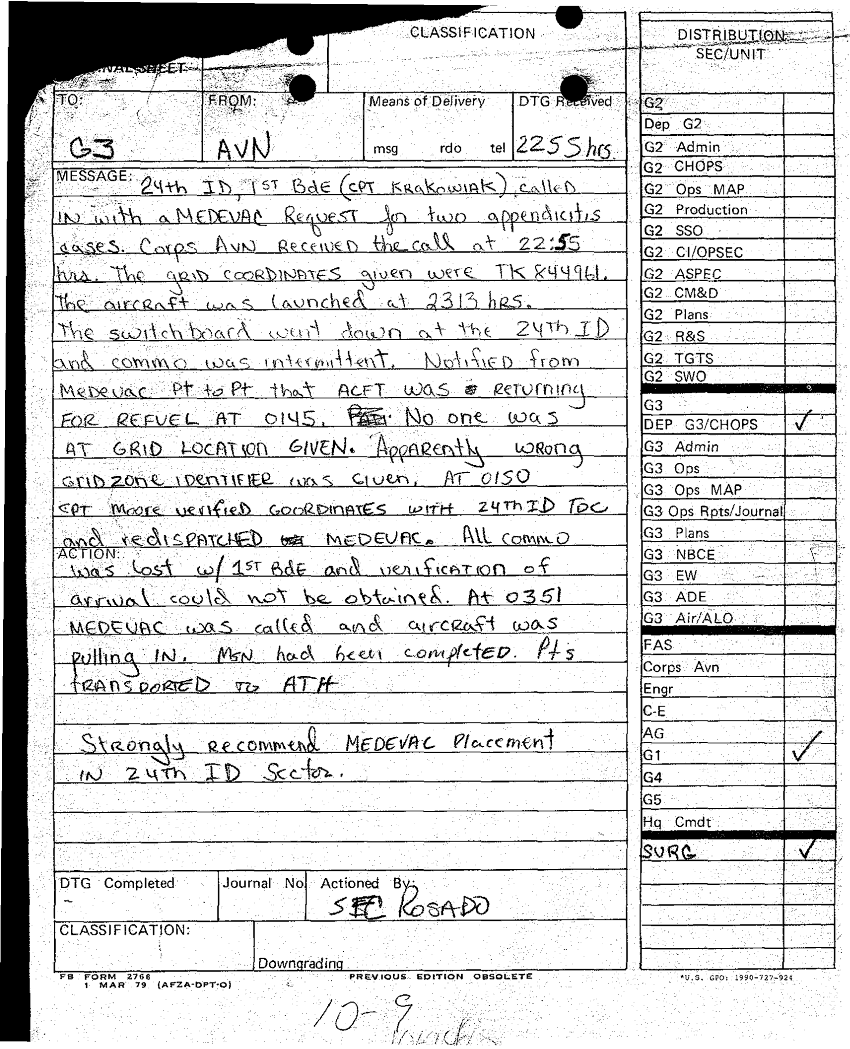 CLASSIFICATION
NAL SHEET
TO:
G3
FROM:
AVN
Means of Delivery
msg rdo tel
DTG Received
2255 hrs.
MESSAGE: 24th ID, 1ST Bde (CPT KRAKOWIAK) called
IN with a MEDEVAC REQUEST for two appendicitis
cases. Corps AVN RECEIVED the call at 22:55
hrs. The GRID COORDINATES given were TK 844961.
The aircraft was launched at 2313 hrs.
The switchboard went down at the 24th ID
and commo was intermittent. Notified from
Medevac Pt to Pt that ACFT was RETURNING
FOR REFUEL AT 0145. No one was
AT GRID LOCATION GIVEN. Apparently wrong
GRID ZONE IDENTIFIER was Given. AT 0150
CPT Moore verified COORDINATES WITH 24TH ID TOC
and REDISPATCHED MEDEVAC. All commo
ACTION:
was lost w/ 1ST Bde and verification of
arrival could not be obtained. At 0351
MEDEVAC was called and aircraft was
pulling IN. MSN had been completed. Pts
TRANSPORTED to ATH
Strongly recommend MEDEVAC Placement
IN 24th ID Sector.
DTG Completed
Journal No.
Actioned By:
ROSADO
CLASSIFICATION:
Downgrading
FB FORM 2768
1 MAR 79 (AFZA-DPT-O)
PREVIOUS EDITION OBSOLETE
10-9
DISTRIBUTION
SEC/UNIT
G2
Dep G2
G2 Admin
G2 CHOPS
G2 Ops MAP
G2 Production
G2 SSO
G2 CI/OPSEC
G2 ASPEC
G2 CM&D
G2 Plans
G2 R&S
G2 TGTS
G2 SWO
G3
DEP G3/CHOPS ✓
G3 Admin
G3 Ops
G3 Ops MAP
G3 Ops Rpts/Journal
G3 Plans
G3 NBCE
G3 EW
G3 ADE
G3 Air/ALO
FAS
Corps Avn
Engr
C-E
AG
G1 ✓
G4
G5
Hq Cmdt
SURG ✓
*U.S. GPO: 1990-727-924